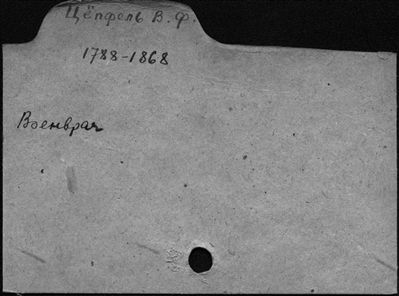 Цёпфель В. Ф.
1788-1868
Военврач